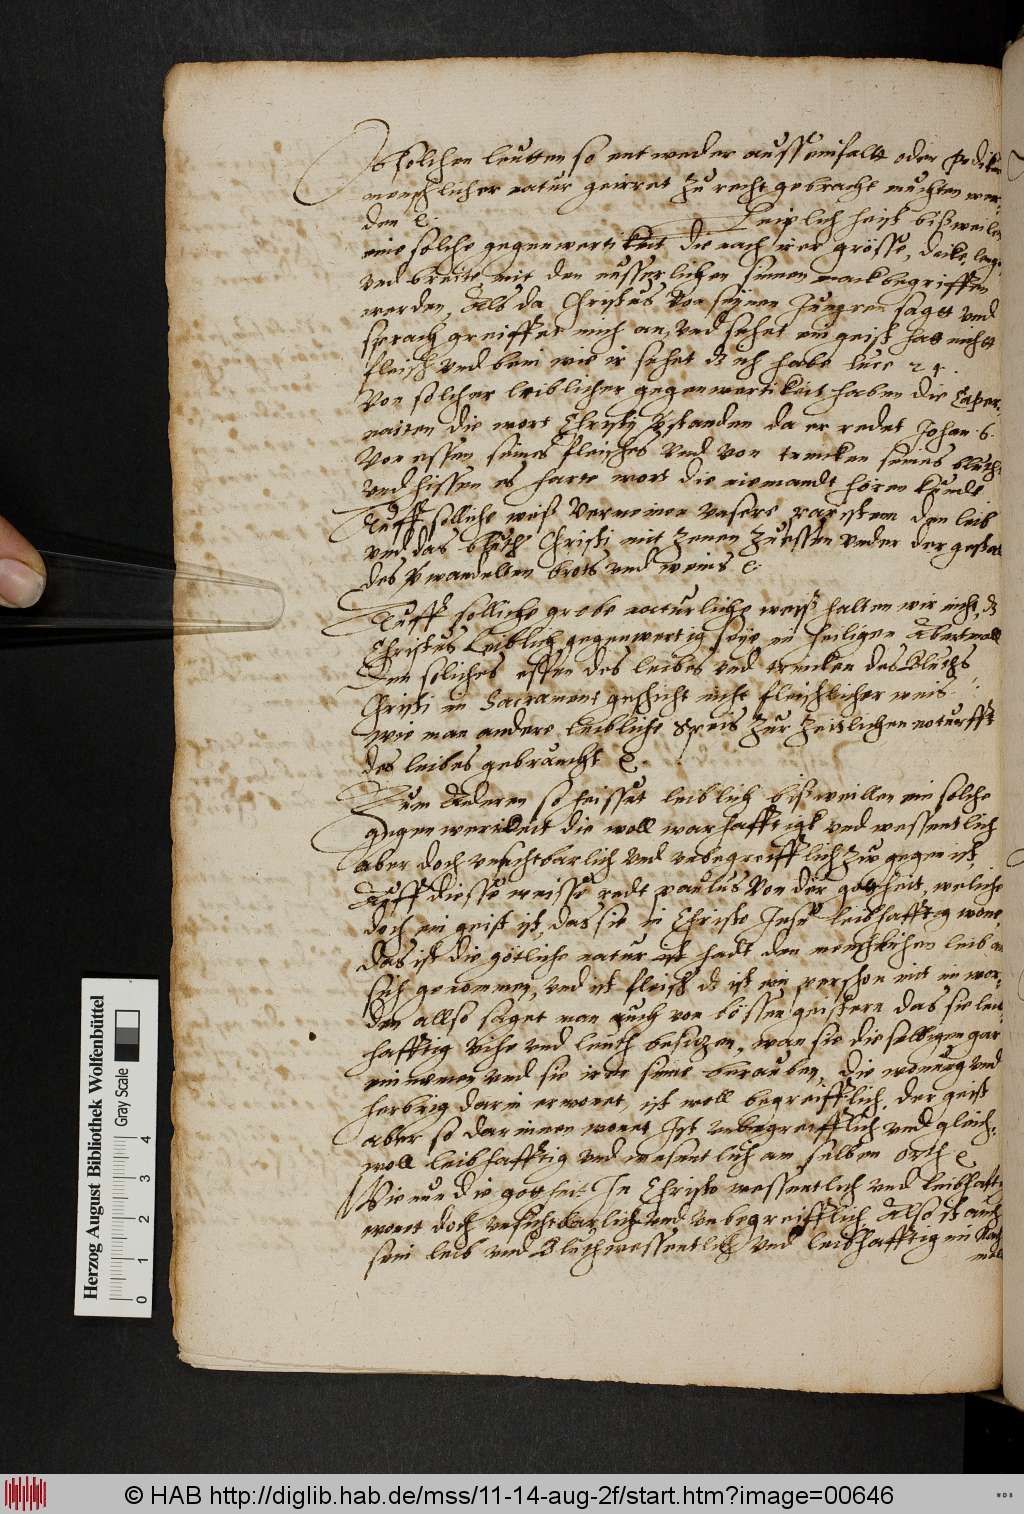 Ob solchen leutten so entweder auss einfallt oder
menschlicher natur geirret zu recht gebracht muchten wer-
den ꝛc. Leiplich heist bißweilen
eine solche gegenwertikeit die nach irer grösse, dicke, leng
vnd breite mit den eusserlichen sinnen mack begriffen
werden, Als da Christus von seinen Jungren saget vnd
sprach greiffet mich an, vnd sehet ein geist hatt nichtt
fleisch vnd bein wie ir sehet dz ich habe Luce 24.
Von solcher leiblicher gegenwertikeit haben die Caper-
naiten die wort Christi verstanden da er redet Johan. 6.
Von essen seines fleisches vnd von trincken seines bluths
vnd hissen es harte wort die niemandt hören kunde
Auff solliche weiß vermeinen vnsere papisten den leib
vnd das bluth Christi mit zenen zuessen vnder der gestalt
des verwandelten brots vnd weins ꝛc.
Auff solliche grobe naturliche weiß halten wir nicht, dz
Christus leiblich gegenwertig seye im heiligen Abentmall
Den soliches essen des leibes vnd trincken des Bluths
Christi im Sacrament geschicht nicht fleischlicher weis
wie man andere leibliche Speis zur zeitlichen noturfft
des leibes gebraucht ꝛc.
Zum Anderen so heisset leiblich bißweillen ein solche
gegenwertikeit die woll warhafftigk vnd wessentlich
aber doch vnsichtbarlich vnd vnbegreifflich zur gegen ist,
Auff diesse weisse redt paulus von der gottheit, weliche
doch ein geist ist, das sie in Christo Jesu leibhafftig wone,
Das ist die götliche natur hadt den menschlichen leib an
sich genommen, vnd ist fleisch dz ist ein person mit im wor-
den allso saget man auch von bössen geistern das sie leib
hafftig vihe vnd leuth besitzen, wan sie dieselbigen gar
einnemen vnd sie irer sinne berauben, die wonung vnd
herbrig darin er wonet, ist woll begreifflich, der geist
aber so darinnen wonet Ist vnbegreifflich vnd gleich-
woll leibhafftig vnd wesentlich am selben orth ꝛc
Wie nun die gottheit In Christo wessentlich vnd leibhafftig
wonet doch vnsichtbarlich vnd vnbegreifflich Also ist auch
sein leib vnd Bluth wessentlich vnd leibhafftig im Nacht
mal
Herzog August Bibliothek Wolfenbüttel
Gray Scale
0 1 2 3 4
© HAB http://diglib.hab.de/mss/11-14-aug-2f/start.htm?image=00646